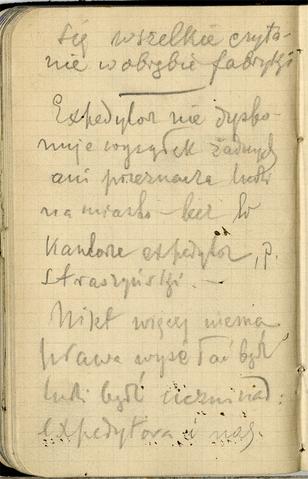 się wszelkie czyta-
nie w obrębie fabryki
Expedytor nie dyspo-
nuje wysyłek żadnych
ani przeznacza ludzi
na miasto - bez
Kantorze expedytor, p.
Straszyński. -
Nikt więcej niema
prawa wysyłać bądź
ludzi bądź
expedytora i nas.